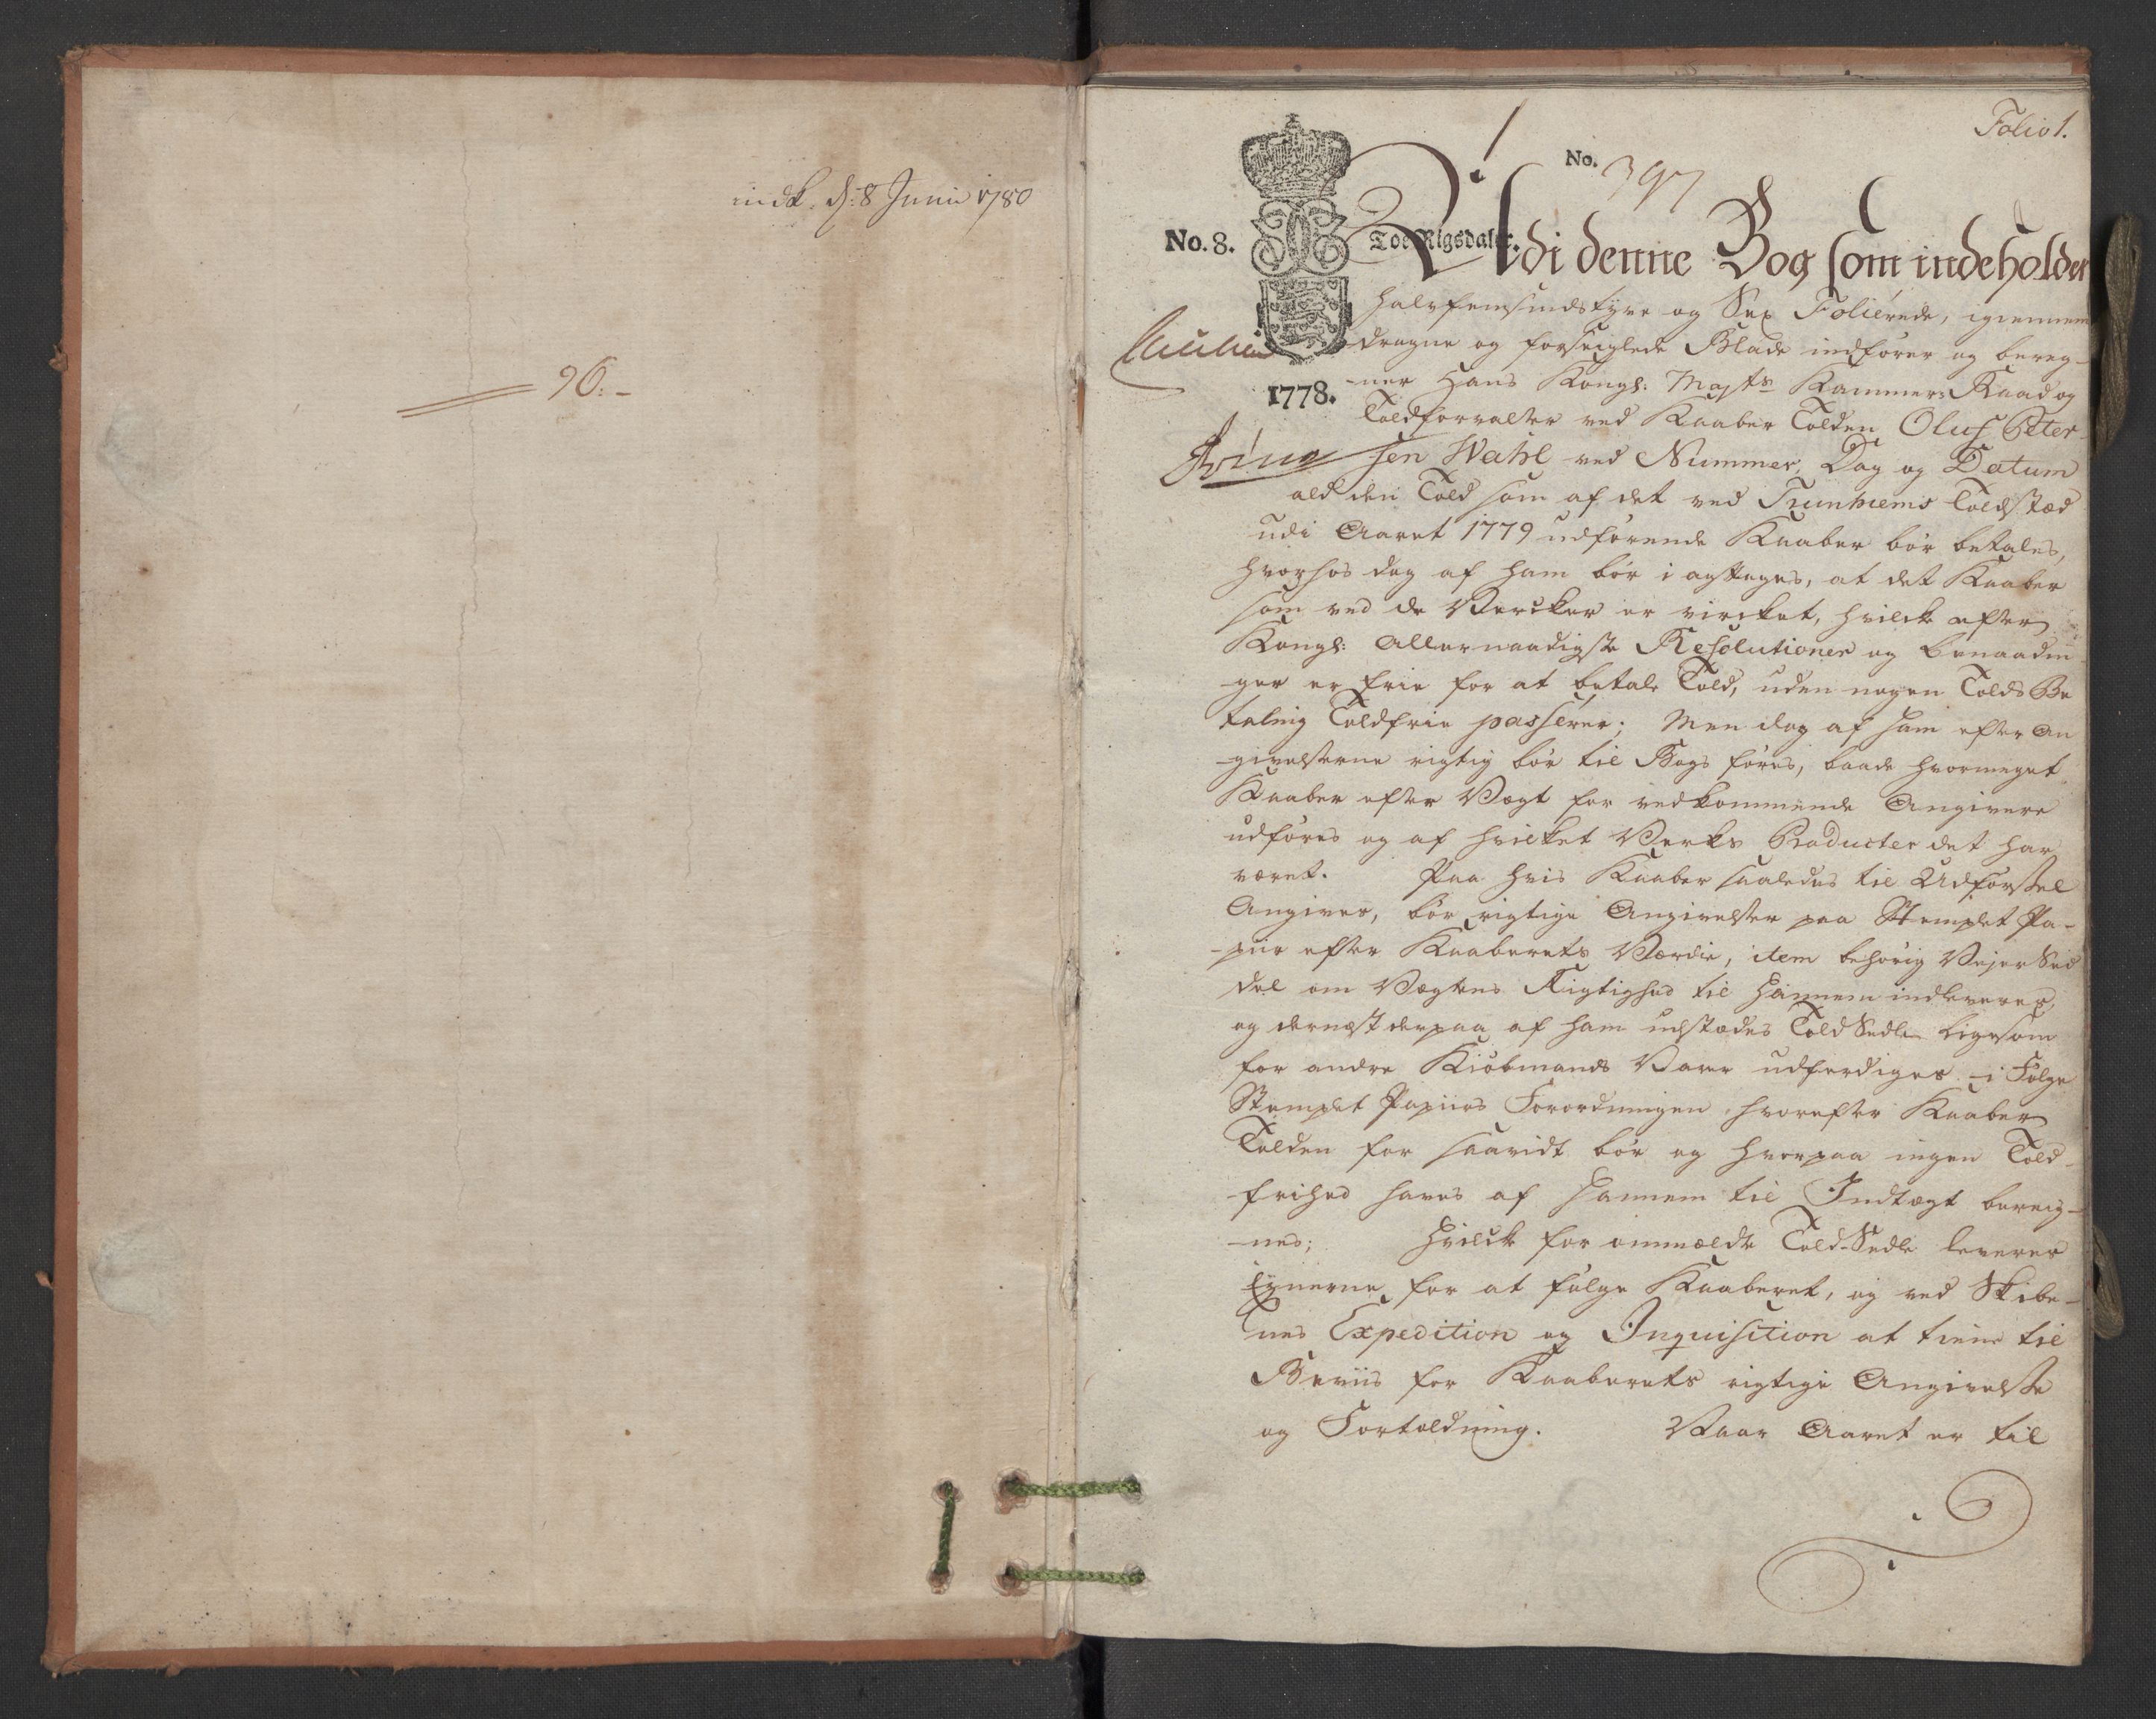 indk. d: 8 Junii 1780
96:-
Folio 1.
No. 397
No. 8.
Toe Rigsdaler.
Udi denne Bog som indeholder
halvfemsindstyve og Sex Folierede, igiennem
dragne og forseiglede Blade indfører og bereg-
1778.
-ner Hans Kongl: Majts Kammer Raad og
Toldforvalter ved Kaaber Tolden Oluf Peter
sen Wahl ved Nummer, Dag og Datum
ald den Told som af det ved Trunhiems Toldstæd
udi Aaret 1779 udførende Kaaber bør betales,
hvorhos dog af ham bør i agttages, at det Kaaber
som ved de Vercker er vircket, hvilcke efter
Kongl: Allernaadigste Resolutioner og benaadin
ger er frie for at betale Told, uden nogen Tolds Be
taling Toldfrie passerer; Men dog af ham efter An
-givelserne rigtig bør til Bogs føres, baade hvormeget
Kaaber efter Vægt for vedkommende Angivere
udføres og af hvilket Verks Producter det har
været. Paa hvis Kaaber saaledes til Udførsel
Angives, bør rigtige Angivelser paa Stemplet Pa-
-piir efter Kaaberets Værdie, item behørig Vejer Sed
del om Vægtens Rigtighed til Hannem indleveres,
og dernæst derpaa af ham udstædes Told Sedle ligesom
for andre Kiøbmands Varer udferdiges i Følge
Stemplet Papiirs Forordningen, hvorefter Kaaber
Tolden for saavidt bør og hvorpaa ingen Told-
-frihed haves af Hannem til Indtægt bereig-
-nes; Hvilcke for ommældte Told-Sedle leveres
Eyerne for at følge Kaaberet, og ved Skibe-
nes Expedition og Inquisition at tiene til
Beviis for Kaaberets rigtige Angivelse
og Fortoldning. Naar Aaret er til